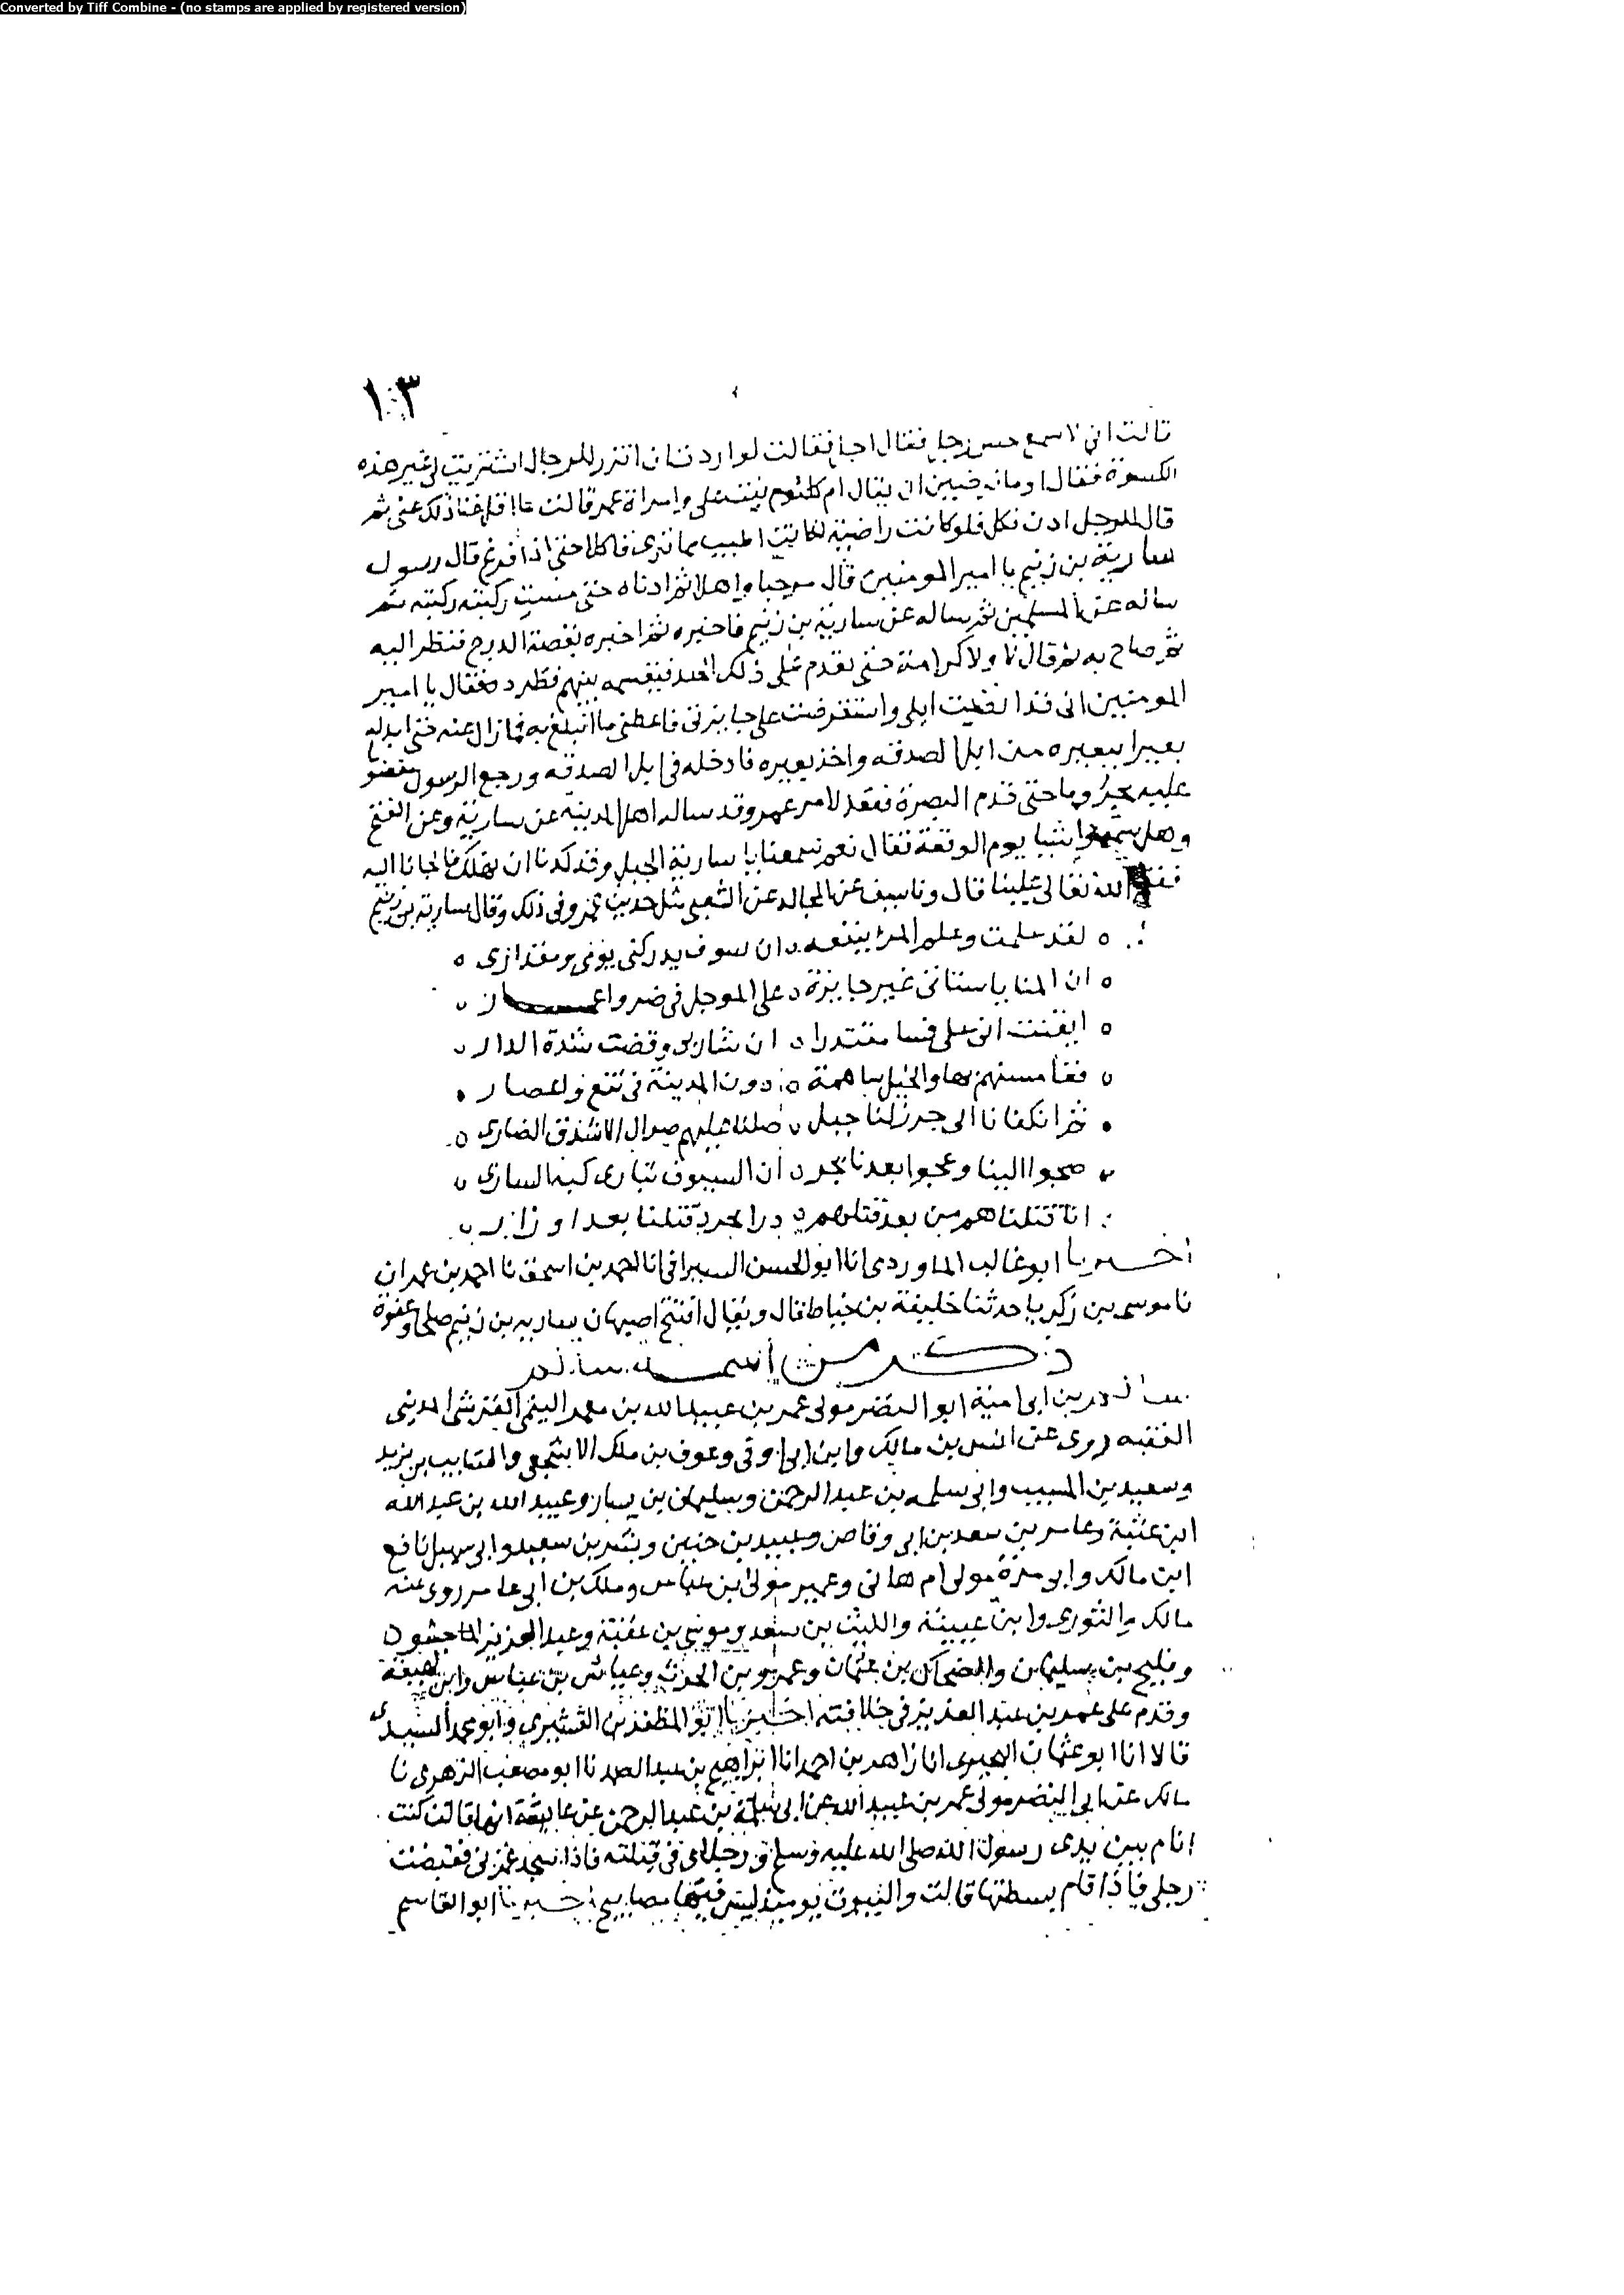 Converted by Tiff Combine - (no stamps are applied by registered version)
١٠٣
قالت اني لاسمع حس رجل فقال اجل فقالت لو اردت ان اتزر للرجال اشتريت لي غير هذه
الكسوة فقال او ما ترضين ان يقال ام كلثوم بنت علي وامراة عمر قالت ما اقل غنا ذلك عني ثم
قال للرجل ادن فكل فلو كانت راضية لكانت اطيب مما ترى فاكلا حتى اذا فرغ قال رسول
سارية بن زنيم يا امير المومنين قال مرحبا واهلا ثم ادناه حتى مست ركبته ركبته ثم
ساله عن المسلمين ثم ساله عن سارية بن زنيم فاخبره ثم اخبره بقصة الدرج فنظر اليه
ثم صاح به ثم قال لا ولا كرامة حتى تقدم على ذلك الجند فيقسمه بينهم فطرده فقال يا امير
المومنين اني قد انضيت ابلي واستقرضت على جايزتي فاعطني ما اتبلغ به فما زال عنه حتى ابدله
بعيرا ببعيره من ابل الصدقة واخذ بعيره فادخله في ابل الصدقة ورجع الرسول مغضوبا
عليه محروما حتى قدم البصرة فنفذ لامر عمر وقد ساله اهل المدينة عن سارية وعن الفتح
وهل سمعوا شيا يوم الوقعة فقال نعم سمعنا يا سارية الجبل وقد كدنا ان نهلك فلجانا اليه
ففتح الله تعالى علينا قال ونا سيف عن المجالد عن الشعبي مثل حديث عمرو في ذلك وقال سارية بن زنيم
لقد علمت وعلم المرء ينفعه ان سوف يدركني يومي ومقداري
ان المنايا ستاتي غير جايزة على الموجل في ضر واعسار
ايقنت اني على قسا مقتدرا ان شا ربي وقضت شدة الدار
فقامستهم بها والخيل ساهمة دون المدينة في نقع واعصار
ثم انكفانا الى جرز لنا جبل صلنا عليهم صوال الاشدق الضاري
صحبوا الينا وعجوا بعدنا بجر ان السيوف تبارى كبه الساري
انا قتلناهم من بعد قتلهم درابجرد قتلنا بعد اوزار
اخبرنا ابو غالب الماوردي انا ابو الحسن السيرافي انا احمد بن اسحق نا احمد بن عمران
نا موسى بن زكريا حدثنا خليفة بن خياط قال ويقال افتتح اصبهان سارية بن زنيم صلحا وعنوة
ذكر من اسمه سالم
سالم بن ابي امية ابو النضر مولى عمر بن عبيد الله بن معمر التيمي القرشي المديني
الفقيه روى عن انس بن مالك وابن ابي اوفى وعوف بن ملك الاشجعي والسايب بن يزيد
وسعيد بن المسيب وابي سلمه بن عبد الرحمن وسليمان بن يسار وعبيد الله بن عبد الله
ابن عتبة وعامر بن سعد بن ابي وقاص وعبيد بن حنين وبشر بن سعيد وابي سهيل نافع
ابن مالك وابو مرة مولى ام هاني وعمير مولى ابن عباس وملك بن ابي عامر روى عنه
مالك والثوري وابن عيينة والليث بن سعد وموسى بن عقبة وعبد العزيز الماجشون
وفليح بن سليمان والضحاك بن عثمان وعمرو بن الحرث وعياش بن عباس وابن لهيعة
وقدم على عمر بن عبد العزيز في خلافته اخبرنا ابو المظفر بن القشيري وابو محمد السيدي
قالا انا ابو عثمان البحيري انا زاهر بن احمد انا ابراهيم بن عبد الصمد نا ابو مصعب الزهري نا
مالك عن ابي النضر مولى عمر بن عبيد الله عن ابي سلمة بن عبد الرحمن عن عايشة انها قالت كنت
انام بين يدي رسول الله صلى الله عليه وسلم ورجلاي في قبلته فاذا سجد غمزني فقبضت
رجلي فاذا قام بسطتها قالت والبيوت يوميذ ليس فيها مصابيح اخبرنا ابو القاسم